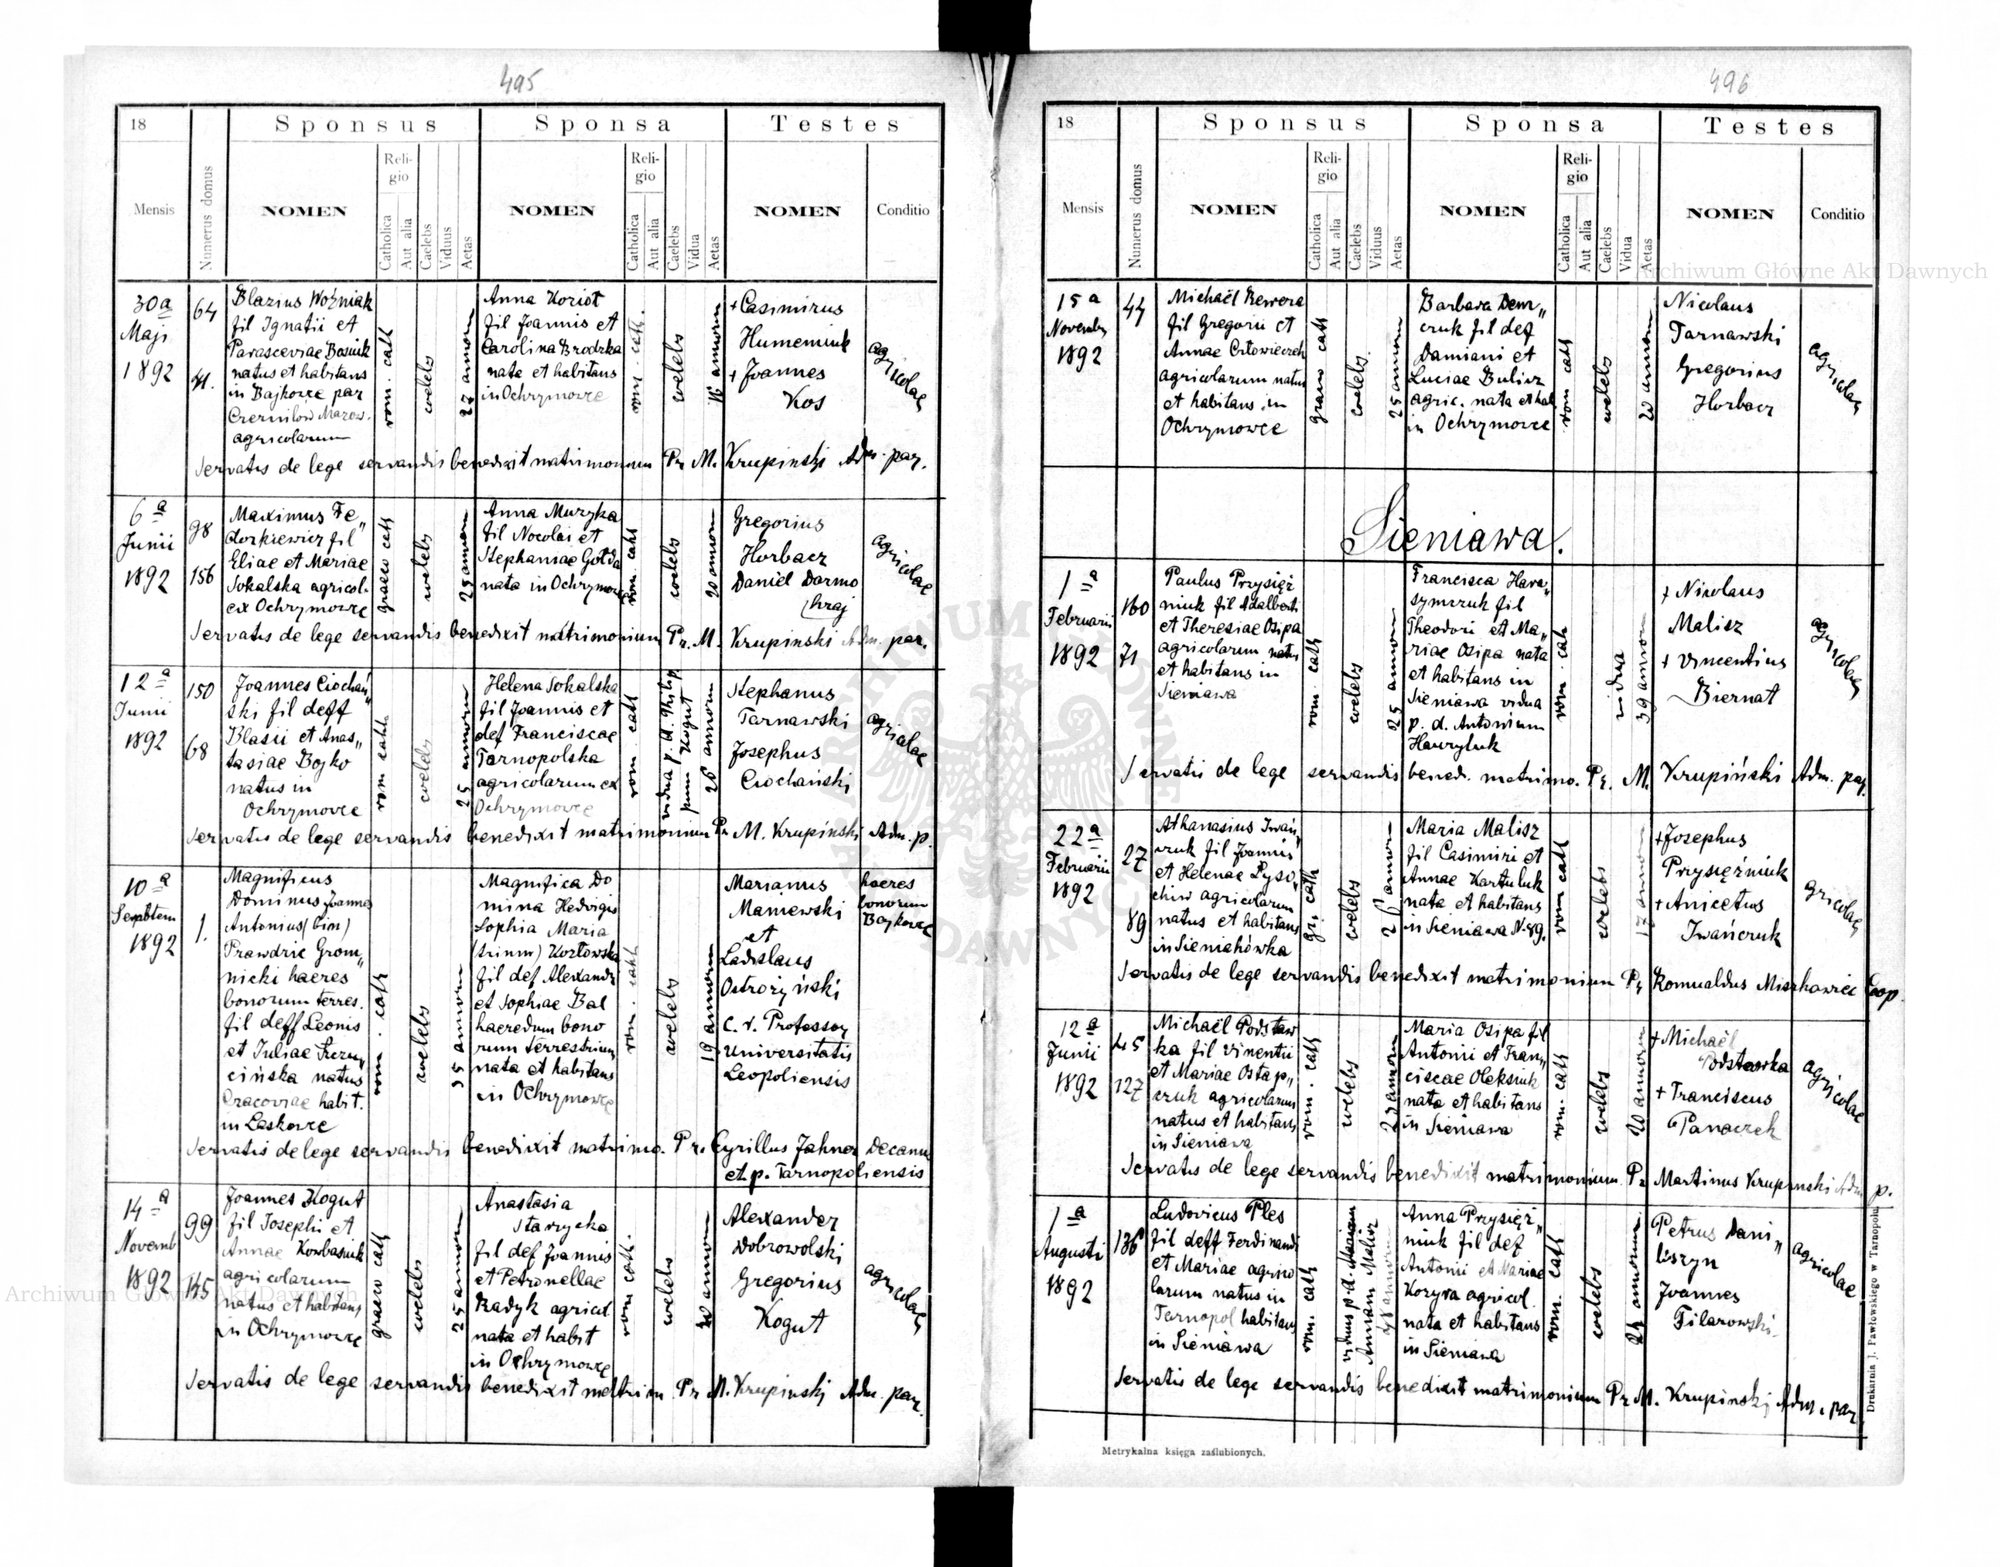 495
18
Sponsus
Sponsa
Testes
Mensis
Numerus domus
NOMEN
Religio
Catholica
Aut alia
Caelebs
Viduus
Aetas
NOMEN
Religio
Catholica
Aut alia
Caelebs
Vidua
Aetas
NOMEN
Conditio
30a
Maji
1892
64
Blazius Woźniak
fil Ignatii et
Parasceviae Bosiuk
natus et habitans
in Bajkowce par
agricolarum
rom. cath
coelebs
22 annorum
Anna Koriot
fil Joannis et
Carolina Brodzka
nata et habitans
in Ochrymowce
rom. cath.
coelebs
+ Casimirus
Humeniuk
+ Joannes
Kos
agricolae
Servatis de lege servandis benedixit matrimonium Pr M. Krupinski Adm. par.
6a
Junii
1892
98
156
Maximus Fe„
dorkiewicz fil
Eliae et Mariae
Sokalska agricol.
ex Ochrymowce
graeco cath
coelebs
Anna Muzyka
fil Nocolai et
Stephaniae Gołda
nata in Ochrymowce
rom. cath
coelebs
20 annorum
Gregorius
Horbacz
Daniel Darmo
hraj
agricolae
Servatis de lege servandis benedixit matrimonium Pr. M. Krupinski Adm. par.
12a
Junii
1892
150
68
Joannes Ciochań„
ski fil deff
Blasii et Anas„
tasiae Bojko
natus in
Ochrymowce
rom cath.
coelebs
25 annorum
Helena Sokalska
fil Joannis et
def Franciscae
Tarnopolska
agricolarum ex
Ochrymowce
rom. cath
vidua p. d. Philip
pum Kogut
26 annorum
Stephanus
Tarnawski
Josephus
Ciochański
agricolae
Servatis de lege servandis benedixit matrimonium Pr M. Krupinski Adm. p.
10a
Septem
1892
1.
Magnificus
Dominus Joannes
Antonius (bin)
Prawdzic Grom„
nicki haeres
bonorum terres.
fil deff Leonis
et Juliae
cińska natus
Cracoviae habit.
in Laskowce
rom. cath
coelebs
35 annorum
Magnifica Do
mina Hedvigis
Sophia Maria
(trium) Kozłowska
fil def Alexandri
et Sophiae Bal
haeredum bono
rum terrestrium
nata et habitans
in Ochrymowce
rom. cath
coelebs
19 annorum
Marianus
Maniewski
et
Ladislaus
Ostrożyński
C. r. Professor
Universitatis
Leopoliensis
haeres
bonorum
Bajkowce
Servatis de lege servandis benedixit matrimo. Pr. Cyrillus Jahner Decanus
et p. Tarnopoliensis
14a
Novemb
1892
99
145
Joannes Kogut
fil Josephi et
Annae Kowbasniuk
agricolarum
natus et habitans
in Ochrymowce
graeco cath
coelebs
25 annorum
Anastasia
Starzycka
fil def Joannis
et Petronellae
Radyk agricol
nata et habit
in Ochrymowce
rom cath.
coelebs
20 annorum
Alexander
Dobrowolski
Gregorius
Kogut
agricolae
Servatis de lege servandis benedixit matrim. Pr M. Krupinski Adm. par.
496
18
Sponsus
Sponsa
Testes
Mensis
Numerus domus
NOMEN
Religio
Catholica
Aut alia
Caelebs
Viduus
Aetas
NOMEN
Religio
Catholica
Aut alia
Caelebs
Vidua
Aetas
NOMEN
Conditio
15a
Novembr
1892
44
Michaël Rewera
fil Gregorii et
Annae
agricolarum natus
et habitans in
Ochrymowce
graeco cath
coelebs
25 annorum
Barbara Dem„
czuk fil def
Damiani et
Luciae Bulicz
agric. nata et hab.
in Ochrymowce
rom cath
coelebs
20 annorum
Nicolaus
Tarnawski
Gregorius
Horbacz
agricolae
Sieniawa.
1a
Februarii
1892
160
71
Paulus Przysięż
niuk fil Adalberti
et Theresiae Osipa
agricolarum natus
et habitans in
Sieniawa
rom. cath
coelebs
25 annorum
Francisca Hara„
symczuk fil
Theodori et Ma„
riae Osipa nata
et habitans in
Sieniawa vidua
p. d. Antonium
Hawryluk
rom. cath
vidua
39 annorum
+ Nicolaus
Malisz
+ Vincentius
Biernat
agricolae
Servatis de lege servandis bened. matrimo. Pr. M. Krupiński Adm. par.
22a
Februarii
1892
27
89
Athanasius Iwań„
czuk fil Joannis
et Helenae Łyso„
chiw agricolarum
natus et habitans
in Sieniahówka
gr. cath
coelebs
26 annorum
Maria Malisz
fil Casimiri et
Annae Kartuluk
nata et habitans
in Sieniawa N.89.
rom cath
coelebs
17 annorum
+ Josephus
Przysiężniuk
+ Anicetus
Iwańczuk
agricolae
Servatis de lege servandis benedixit matrimonium Pr Romualdus Coop.
12a
Junii
1892
45
127
Michaël Podstaw
ka fil Vincentii
et Mariae Ostap„
czuk agricolarum
natus et habitans
in Sieniawa
rom. cath
coelebs
Maria Osipa fil
Antonii et Fran„
ciscae Oleksiuk
nata et habitans
in Sieniawa
rom. cath
coelebs
20 annorum
+ Michaël
Podstawka
+ Franciscus
Panaczek
agricolae
Servatis de lege servandis benedixit matrimonium Pr Martinus Krupinski Adm. p.
1a
Augusti
1892
136
Ludovicus Ples
fil deff Ferdinandi
et Mariae agrico
larum natus in
Tarnopol habitans
in Sieniawa
rom. cath
Anna Przysięż„
niuk fil def
Antonii et Mariae
Kozyra agricol.
nata et habitans
in Sieniawa
rom. cath
coelebs
24 annorum
Petrus Dani„
liszyn
Joannes
Filarowski
agricolae
Servatis de lege servandis benedixit matrimonium Pr M. Krupinski Adm. par
Metrykalna księga zaślubionych.
Drukarnia J. Pawłowskiego w Tarnopolu
Archiwum Główne Akt Dawnych
Archiwum Główne Akt Dawnych
ARCHIWUM GŁÓWNE AKT DAWNYCH